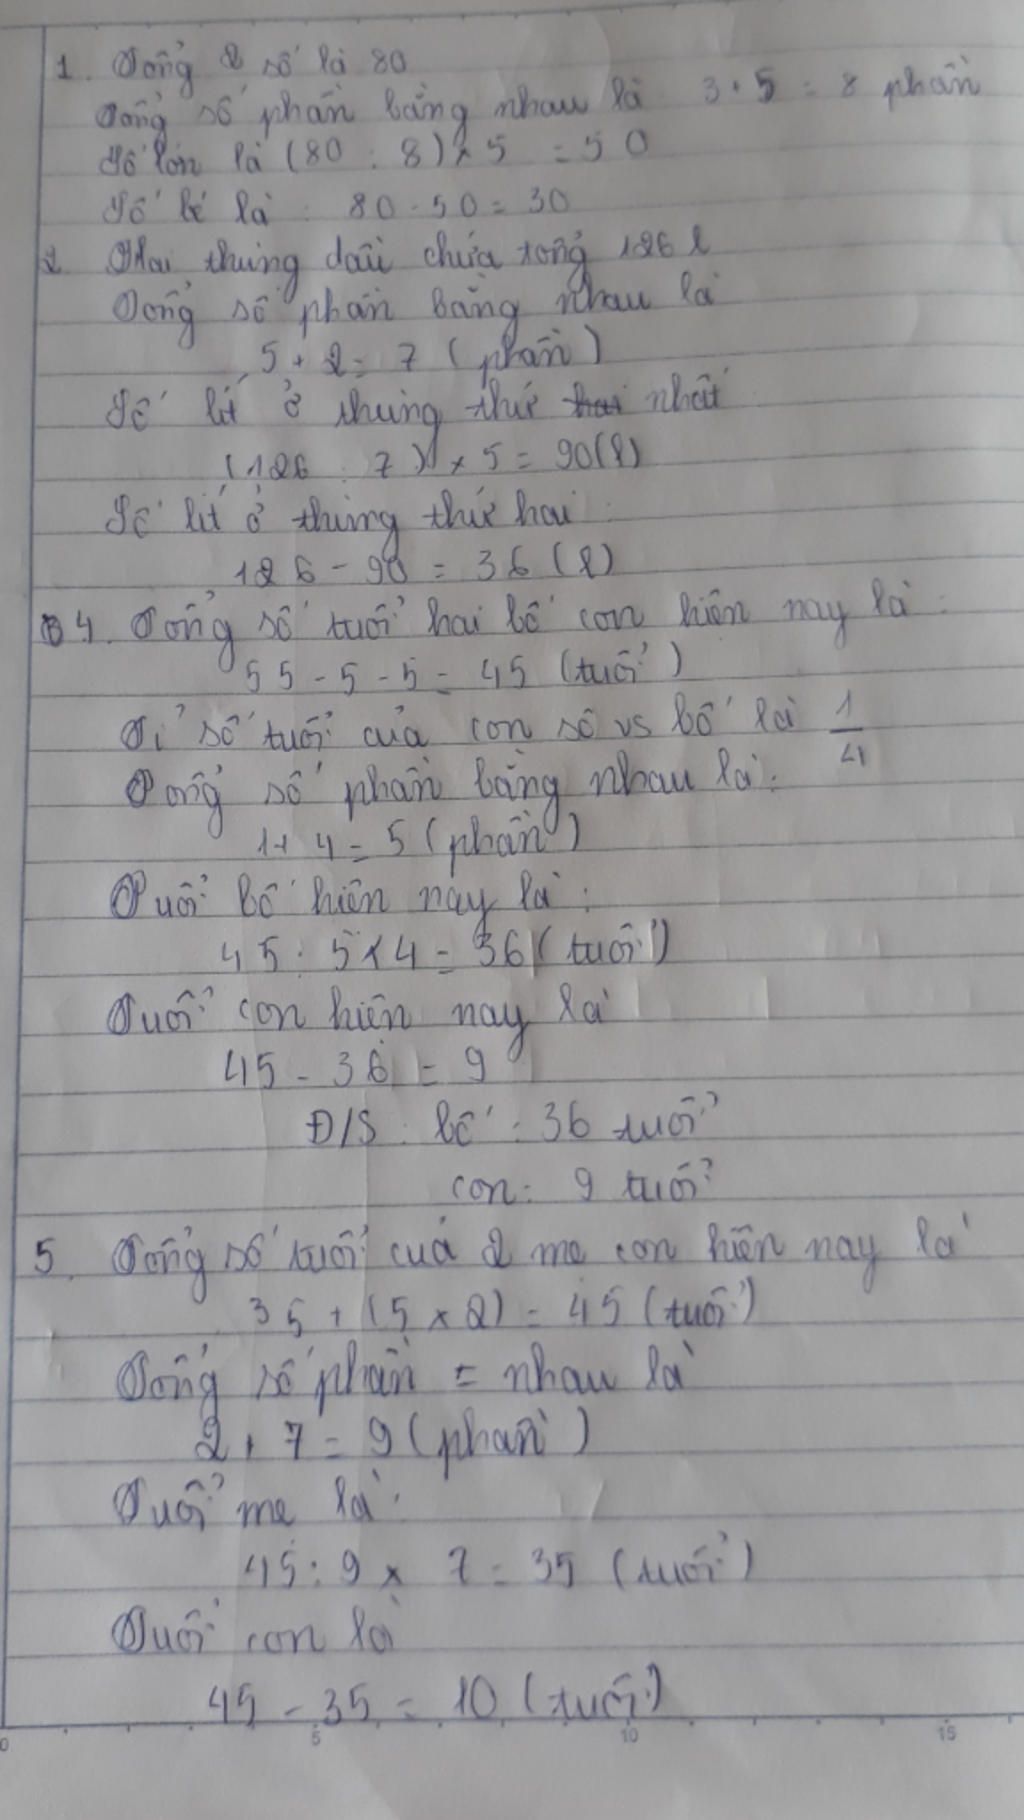 1. Tổng 2 số là 80
Tổng số phần bằng nhau là 3+5 = 8 phần
Số lớn là (80 : 8) x 5 = 50
Số bé là : 80 - 50 = 30
2. Hai thùng dầu chứa tổng 126 l
Tổng số phần bằng nhau là
5 + 2 = 7 (phần)
Số lít ở thùng thứ hai nhất
(126 : 7) x 5 = 90 (l)
Số lít ở thùng thứ hai :
126 - 90 = 36 (l)
B4. Tổng số tuổi hai bố con hiện nay là :
55 - 5 - 5 = 45 (tuổi)
Tỉ số tuổi của con số vs bố là 1/4
Tổng số phần bằng nhau là :
1 + 4 = 5 (phần)
Tuổi bố hiện nay là :
45 : 5 x 4 = 36 (tuổi)
Tuổi con hiện nay là
45 - 36 = 9
Đ/S : bố : 36 tuổi
con : 9 tuổi
5. Tổng số tuổi của 2 mẹ con hiện nay là
35 + (5 x 2) = 45 (tuổi)
Tổng số phần = nhau là
2 + 7 = 9 (phần)
Tuổi mẹ là :
45 : 9 x 7 = 35 (tuổi)
Tuổi con là
45 - 35 = 10 (tuổi)
0 5 10 15